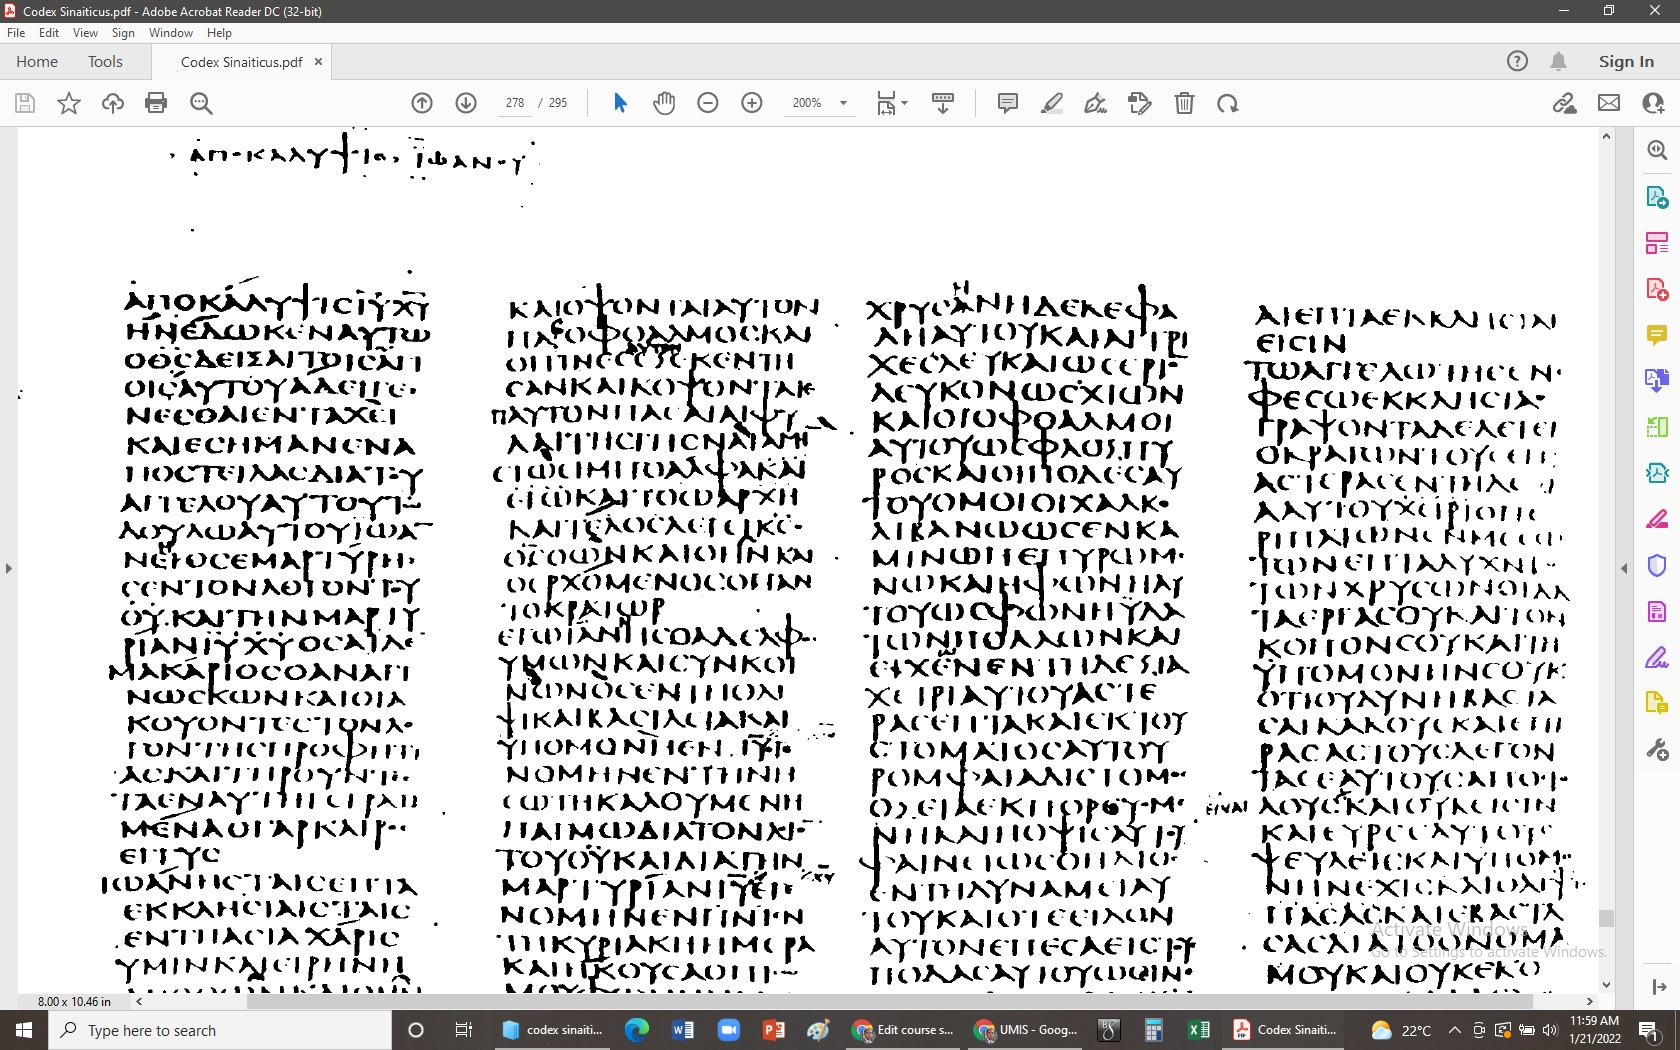 Codex Sinaiticus.pdf - Adobe Acrobat Reader DC (32-bit)
File Edit View Sign Window Help
Home Tools Codex Sinaiticus.pdf × Sign In
278 / 295 200%
ΑΠΟΚΑΛΥΨΙϹ ΙΩΑΝΟΥ
ΑΠΟΚΑΛΥΨΙϹΙΥΧΥ
ΗΝΕΔΩΚΕΝΑΥΤΩ
ΟΘϹΔΕΙΞΑΙΤΟΙϹΑΓΙ
ΟΙϹΑΥΤΟΥΑΔΕΙΓΕ
ΝΕϹΘΑΙΕΝΤΑΧΕΙ
ΚΑΙΕϹΗΜΑΝΕΝΑ
ΠΟϹΤΕΙΛΑϹΔΙΑΤΟΥ
ΑΓΓΕΛΟΥΑΥΤΟΥΤΩ
ΔΟΥΛΩΑΥΤΟΥΙΩΑ
ΝΕΙΟϹΕΜΑΡΤΥΡΗ
ϹΕΝΤΟΝΛΟΓΟΝΤΟΥ
ΘΥΚΑΙΤΗΝΜΑΡΤΥ
ΡΙΑΝΙΥΧΥΟϹΑΙΔΕ
ΜΑΚΑΡΙΟϹΟΑΝΑΓΙ
ΝΩϹΚΩΝΚΑΙΟΙΑ
ΚΟΥΟΝΤΕϹΤΟΝΛΟ
ΓΟΝΤΗϹΠΡΟΦΗΤΙ
ΑϹΚΑΙΤΗΡΟΥΝΤΕϹ
ΤΑΕΝΑΥΤΗΓΕΓΡΑΜ
ΜΕΝΑΟΓΑΡΚΑΙΡΟϹ
ΕΓΓΥϹ
ΙΩΑΝΗϹΤΑΙϹΕΠΤΑ
ΕΚΚΛΗϹΙΑΙϹΤΑΙϹ
ΕΝΤΗΑϹΙΑΧΑΡΙϹ
ΥΜΙΝΚΑΙΕΙΡΗΝΗ
ΚΑΙΟΨΟΝΤΑΙΑΥΤΟΝ
ΠΑϹΟΦΘΑΛΜΟϹΚΑΙ
ΟΙΤΙΝΕϹΕΞΕΚΕΝΤΗ
ϹΑΝΚΑΙΚΟΨΟΝΤΑΙΕ
ΠΑΥΤΟΝΠΑϹΑΙΑΙΦΥ
ΛΑΙΤΗϹΓΗϹΝΑΙΑΜΗ
ΕΓΩΕΙΜΙΤΟΑΛΦΑΚΑΙ
ΕΓΩΚΑΙΤΟΩΑΡΧΗ
ΚΑΙΤΕΛΟϹΛΕΓΕΙΚϹΟ
ΘϹΟΩΝΚΑΙΟΗΝΚΑΙ
ΟΕΡΧΟΜΕΝΟϹΟΠΑΝ
ΤΟΚΡΑΤΩΡ
ΕΓΩΙΩΑΝΗϹΟΑΔΕΛΦΟϹ
ΥΜΩΝΚΑΙϹΥΝΚΟΙ
ΝΩΝΟϹΕΝΤΗΘΛΙ
ΨΙΚΑΙΒΑϹΙΛΕΙΑΚΑΙ
ΥΠΟΜΟΝΗΕΝΙΥΕΓΕ
ΝΟΜΗΝΕΝΤΗΝΗ
ϹΩΤΗΚΑΛΟΥΜΕΝΗ
ΠΑΤΜΩΔΙΑΤΟΝΛΟΓΟΝ
ΤΟΥΘΥΚΑΙΔΙΑΤΗΝ
ΜΑΡΤΥΡΙΑΝΙΥΕΓΕ
ΝΟΜΗΝΕΝΠΝΙΕΝ
ΤΗΚΥΡΙΑΚΗΗΜΕΡΑ
ΚΑΙΗΚΟΥϹΑΟΠΙϹΩ
ΧΡΥϹΑΝΗΔΕΚΕΦΑ
ΛΗΑΥΤΟΥΚΑΙΑΙΤΡΙ
ΧΕϹΛΕΥΚΑΙΩϹΕΡΙ
ΑΕΥΚΟΝΩϹΧΙΩΝ
ΚΑΙΟΙΟΦΘΑΛΜΟΙ
ΑΥΤΟΥΩϹΦΛΟΞΠΥ
ΡΟϹΚΑΙΟΙΠΟΔΕϹΑΥ
ΤΟΥΟΜΟΙΟΙΧΑΛΚΟ
ΛΙΒΑΝΩΩϹΕΝΚΑ
ΜΙΝΩΠΕΠΥΡΩΜΕ
ΝΩΚΑΙΗΦΩΝΗΑΥ
ΤΟΥΩϹΦΩΝΗΥΔΑ
ΤΩΝΠΟΛΛΩΝΚΑΙ
ΕΙΧΕΝΕΝΤΗΔΕΞΙΑ
ΧΕΙΡΙΑΥΤΟΥΑϹΤΕ
ΡΑϹΕΠΤΑΚΑΙΕΚΤΟΥ
ϹΤΟΜΑΤΟϹΑΥΤΟΥ
ΡΟΜΦΑΙΑΔΙϹΤΟΜΟϹ
ΟΞΕΙΑΕΚΠΟΡΕΥΟΜΕ
ΝΗΚΑΙΗΟΨΙϹΑΥΤΟΥ
ΦΑΙΝΕΙΩϹΟΗΛΙΟϹ
ΕΝΤΗΔΥΝΑΜΕΙΑΥ
ΤΟΥΚΑΙΟΤΕΕΙΔΟΝ
ΑΥΤΟΝΕΠΕϹΑΕΙϹΤΟΥϹ
ΠΟΔΑϹΑΥΤΟΥΩϹΙΝΕ
ΑΙΕΠΤΑΕΚΚΛΗϹΙΑΙ
ΕΙϹΙΝ
ΤΩΑΓΓΕΛΩΤΗϹΕΝ
ΦΕϹΩΕΚΚΛΗϹΙΑϹ
ΓΡΑΨΟΝΤΑΔΕΛΕΓΕΙ
ΟΚΡΑΤΩΝΤΟΥϹΕΠΤΑ
ΑϹΤΕΡΑϹΕΝΤΗΔΕΞΙΑ
ΑΥΤΟΥΧΕΙΡΙΟΠΕ
ΡΙΠΑΤΩΝΕΝΜΕϹΩ
ΤΩΝΕΠΤΑΛΥΧΝΙ
ΤΩΝΧΡΥϹΩΝΟΙΔΑ
ΤΑΕΡΓΑϹΟΥΚΑΙΤΟΝ
ΚΟΠΟΝϹΟΥΚΑΙΤΗ
ΥΠΟΜΟΝΗΝϹΟΥΚΑΙ
ΟΤΙΟΥΔΥΝΗΒΑϹΤΑ
ϹΑΙΚΑΚΟΥϹΚΑΙΕΠΙ
ΡΑϹΑϹΤΟΥϹΛΕΓΟΝ
ΤΑϹΕΑΥΤΟΥϹΑΠΟϹΤΟ
ΕΙΝΑΙ ΛΟΥϹΚΑΙΟΥΚΕΙϹΙΝ
ΚΑΙΕΥΡΕϹΑΥΤΟΥϹ
ΨΕΥΔΕΙϹΚΑΙΥΠΟΜΟ
ΝΗΝΕΧΙϹΚΑΙΘΛΙΨΙϹ
ΠΑϹΑϹΚΑΙΕΒΑϹΤΑ
ϹΑϹΔΙΑΤΟΟΝΟΜΑ
ΜΟΥΚΑΙΟΥΚΕΚΟ
Activate Windows
Go to Settings to activate Windows.
8.00 x 10.46 in
Type here to search codex sinaiti... Edit course s... UMIS - Goog... Codex Sinaiti... 22°C 11:59 AM
1/21/2022